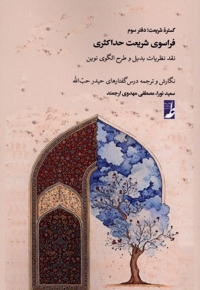 گسترهٔ شریعت؛ دفتر سوم
فراسوی شریعت حداکثری
نقد نظریات بدیل و طرح الگوی نوین
نگارش و ترجمه درس‌گفتارهای حیدر حبّ‌الله
سعید نورا، مصطفی مهدوی ارجمند